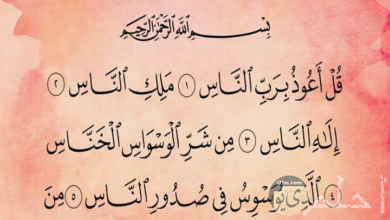 بِسْمِ اللَّهِ الرَّحْمَٰنِ الرَّحِيمِ
قُلْ أَعُوذُ بِرَبِّ ٱلنَّاسِ ١ مَلِكِ ٱلنَّاسِ ٢
إِلَٰهِ ٱلنَّاسِ ٣ مِن شَرِّ ٱلْوَسْوَاسِ ٱلْخَنَّاسِ
٤ ٱلَّذِي يُوَسْوِسُ فِي صُدُورِ ٱلنَّاسِ ٥ مِنَ